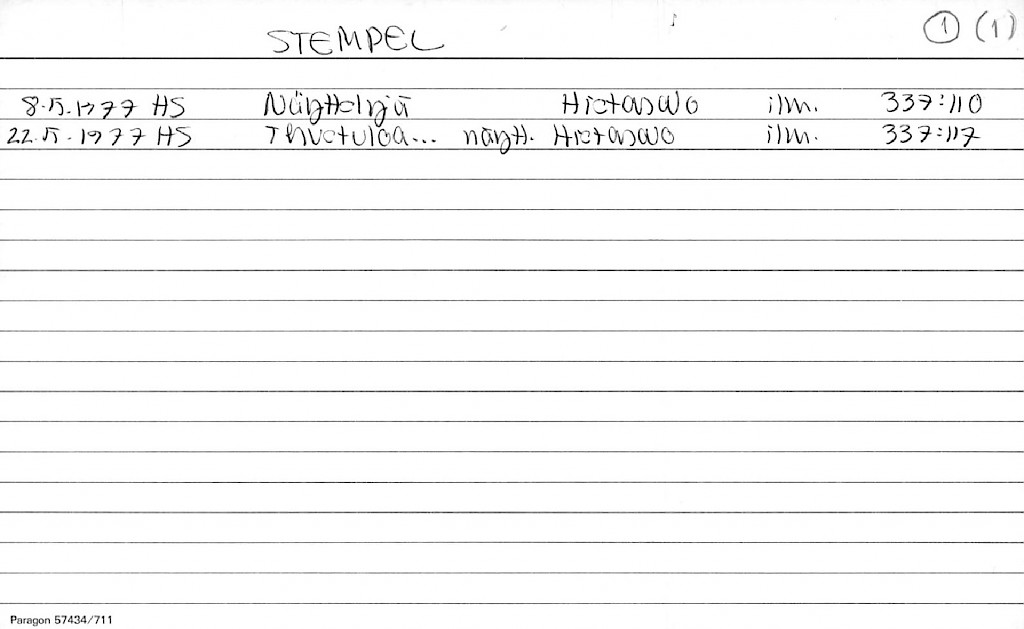 STEMPEL 1 (1)
8.5.1977 HS Näyttelijä Hietasalo ilm. 337:110
22.5.1977 HS Tervetuloa... näytt. Hietasalo ilm. 337:117
Paragon 57434/711